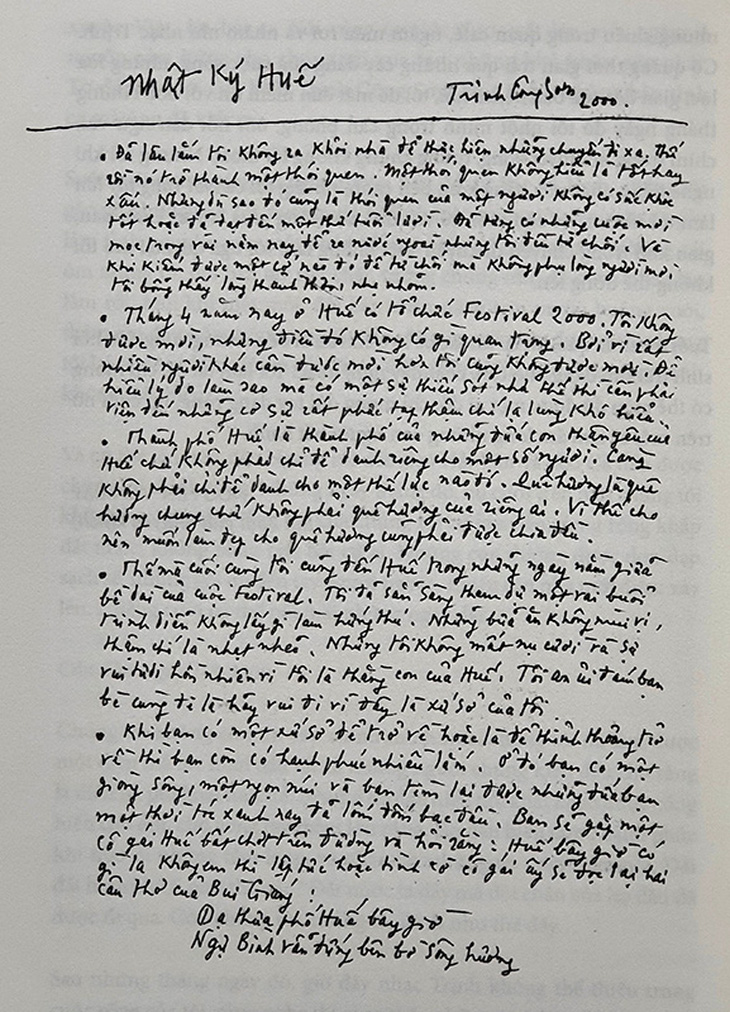 Nhật Ký Huế
Trịnh Công Sơn 2000.
• Đã lâu lắm tôi không ra khỏi nhà để thực hiện những chuyến đi xa. Thế
rồi nó trở thành một thói quen. Một thói quen không hiểu là tốt hay
xấu. Nhưng dù sao đó cũng là thói quen của một người không có sức khỏe
tốt hoặc đã đạt đến một thứ tuổi lười. Đã từng có những cuộc mời
mọc trong vài năm nay để ra nước ngoài nhưng tôi đều từ chối. Và
khi kiếm được một cớ nào đó để từ chối mà không phụ lòng người mời
tôi bỗng thấy lòng thanh thản, nhẹ nhõm.
• Tháng 4 năm nay ở Huế có tổ chức Festival 2000. Tôi không
được mời, nhưng điều đó không có gì quan trọng. Bởi vì rất
nhiều người khác cần được mời hơn tôi cũng không được mời. Để
hiểu lý do làm sao mà có một sự thiếu sót như thế thì cần phải
viện đến những cơ sự rất phức tạp thậm chí lạ lùng khó hiểu.
• Thành phố Huế là thành phố của những đứa con thân yêu của
Huế chứ không phải chỉ để dành riêng cho một số người. Càng
không phải chỉ để dành cho một thế lực nào đó. Quê hương là quê
hương chung chứ không phải quê hương của riêng ai. Vì thế cho
nên muốn làm đẹp cho quê hương cũng phải được chia đều.
• Thế mà cuối cùng tôi cũng đến Huế trong những ngày nằm giữa
bề dài của cuộc Festival. Tôi đã sẵn sàng tham dự một vài buổi
trình diễn không lấy gì làm hứng thú. Những bữa ăn không mùi vị,
thậm chí là nhạt nhẽo. Nhưng tôi không mất nụ cười và sự
vui tươi hồn nhiên vì tôi là thằng con của Huế. Tôi an ủi đám bạn
bè cùng đi là hãy vui đi vì đây là xứ sở của tôi.
• Khi bạn có một xứ sở để trở về hoặc là để thỉnh thoảng trở
về thì bạn còn có hạnh phúc nhiều lắm. Ở đó bạn có một
giòng sông, một ngọn núi và bạn tìm lại được những đứa bạn
một thời tóc xanh nay đã lốm đốm bạc đầu. Bạn sẽ gặp một
cô gái Huế bất chợt trên đường và hỏi rằng: Huế bây giờ có
gì lạ không em thì lập tức hoặc tình cờ cô gái ấy sẽ đọc lại hai
câu thơ của Bùi Giáng:
Dạ thưa phố Huế bây giờ
Ngự Bình vẫn đứng bên bờ sông Hương